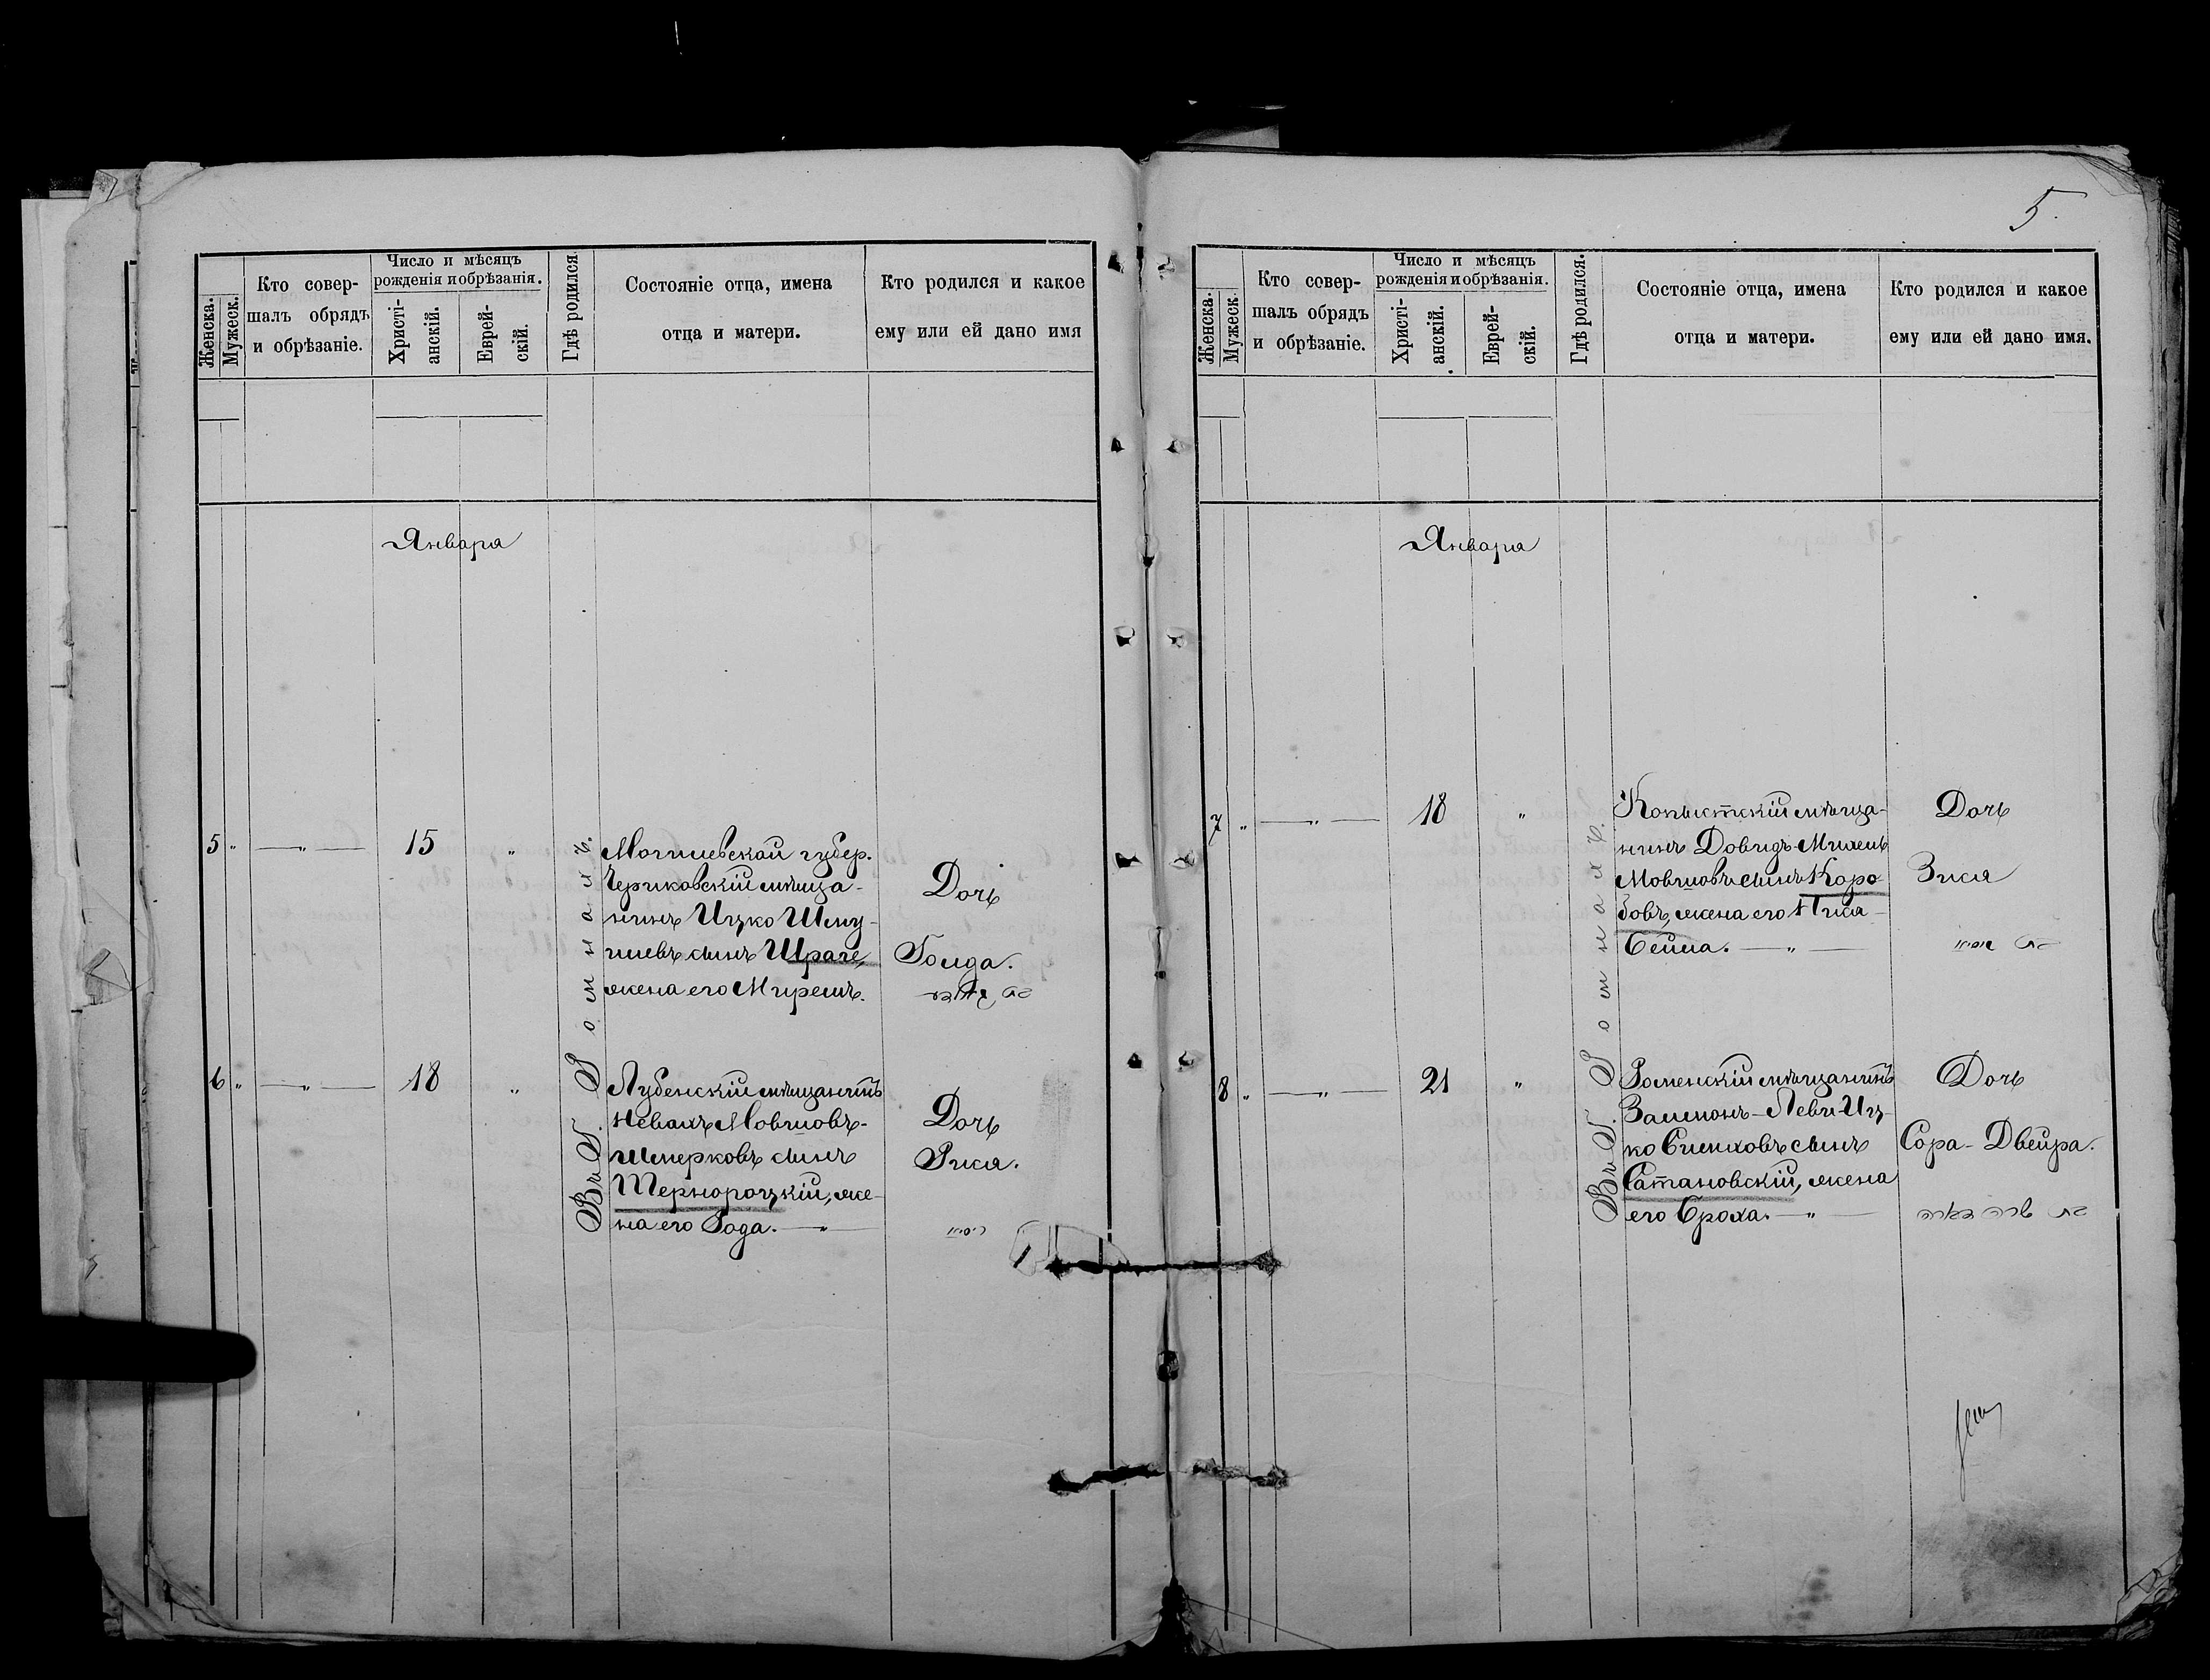 5.
Женска.
Мужеск.
Кто совер-
шалъ обрядъ
и обрѣзаніе.
Число и мѣсяцъ
рожденія и обрѣзанія.
Христі-
анскій.
Еврей-
скій.
Гдѣ родился.
Состояніе отца, имена
отца и матери.
Кто родился и какое
ему или ей дано имя
Января
5 " — " — 15 "
Могилевской губер.
Чериковскій мѣща-
нинъ Ицко Шму-
илевъ сынъ Шраге,
жена его Мирешъ.
Дочь
Голда.
6 " — " — 18 "
Лубенскій мѣщанинъ
Невахъ Мовшовъ-
Шмерковъ сынъ
Тернороцкій, же-
на его Рода. — "
Дочь
Рися.
ריסיא
Въ Г. Ромнахъ.
Женска.
Мужеск.
Кто совер-
шалъ обрядъ
и обрѣзаніе.
Число и мѣсяцъ
рожденія и обрѣзанія.
Христі-
анскій.
Еврей-
скій.
Гдѣ родился.
Состояніе отца, имена
отца и матери.
Кто родился и какое
ему или ей дано имя.
Января
7 " — " — 18 "
Копыстскій мѣща-
нинъ Довидъ-Михель
Мовшовъ сынъ Каро-
бовъ, жена его Нися-
Бейла. — " —
Дочь
Зися
8 " — " — 21 "
Роменскій мѣщанинъ
Залмонъ-Леви-Иц-
ко Симховъ сынъ
Сатановскій, жена
его Броха. — " —
Дочь
Сора-Двейра.
בת שרה דבורה
Въ Г. Ромнахъ.